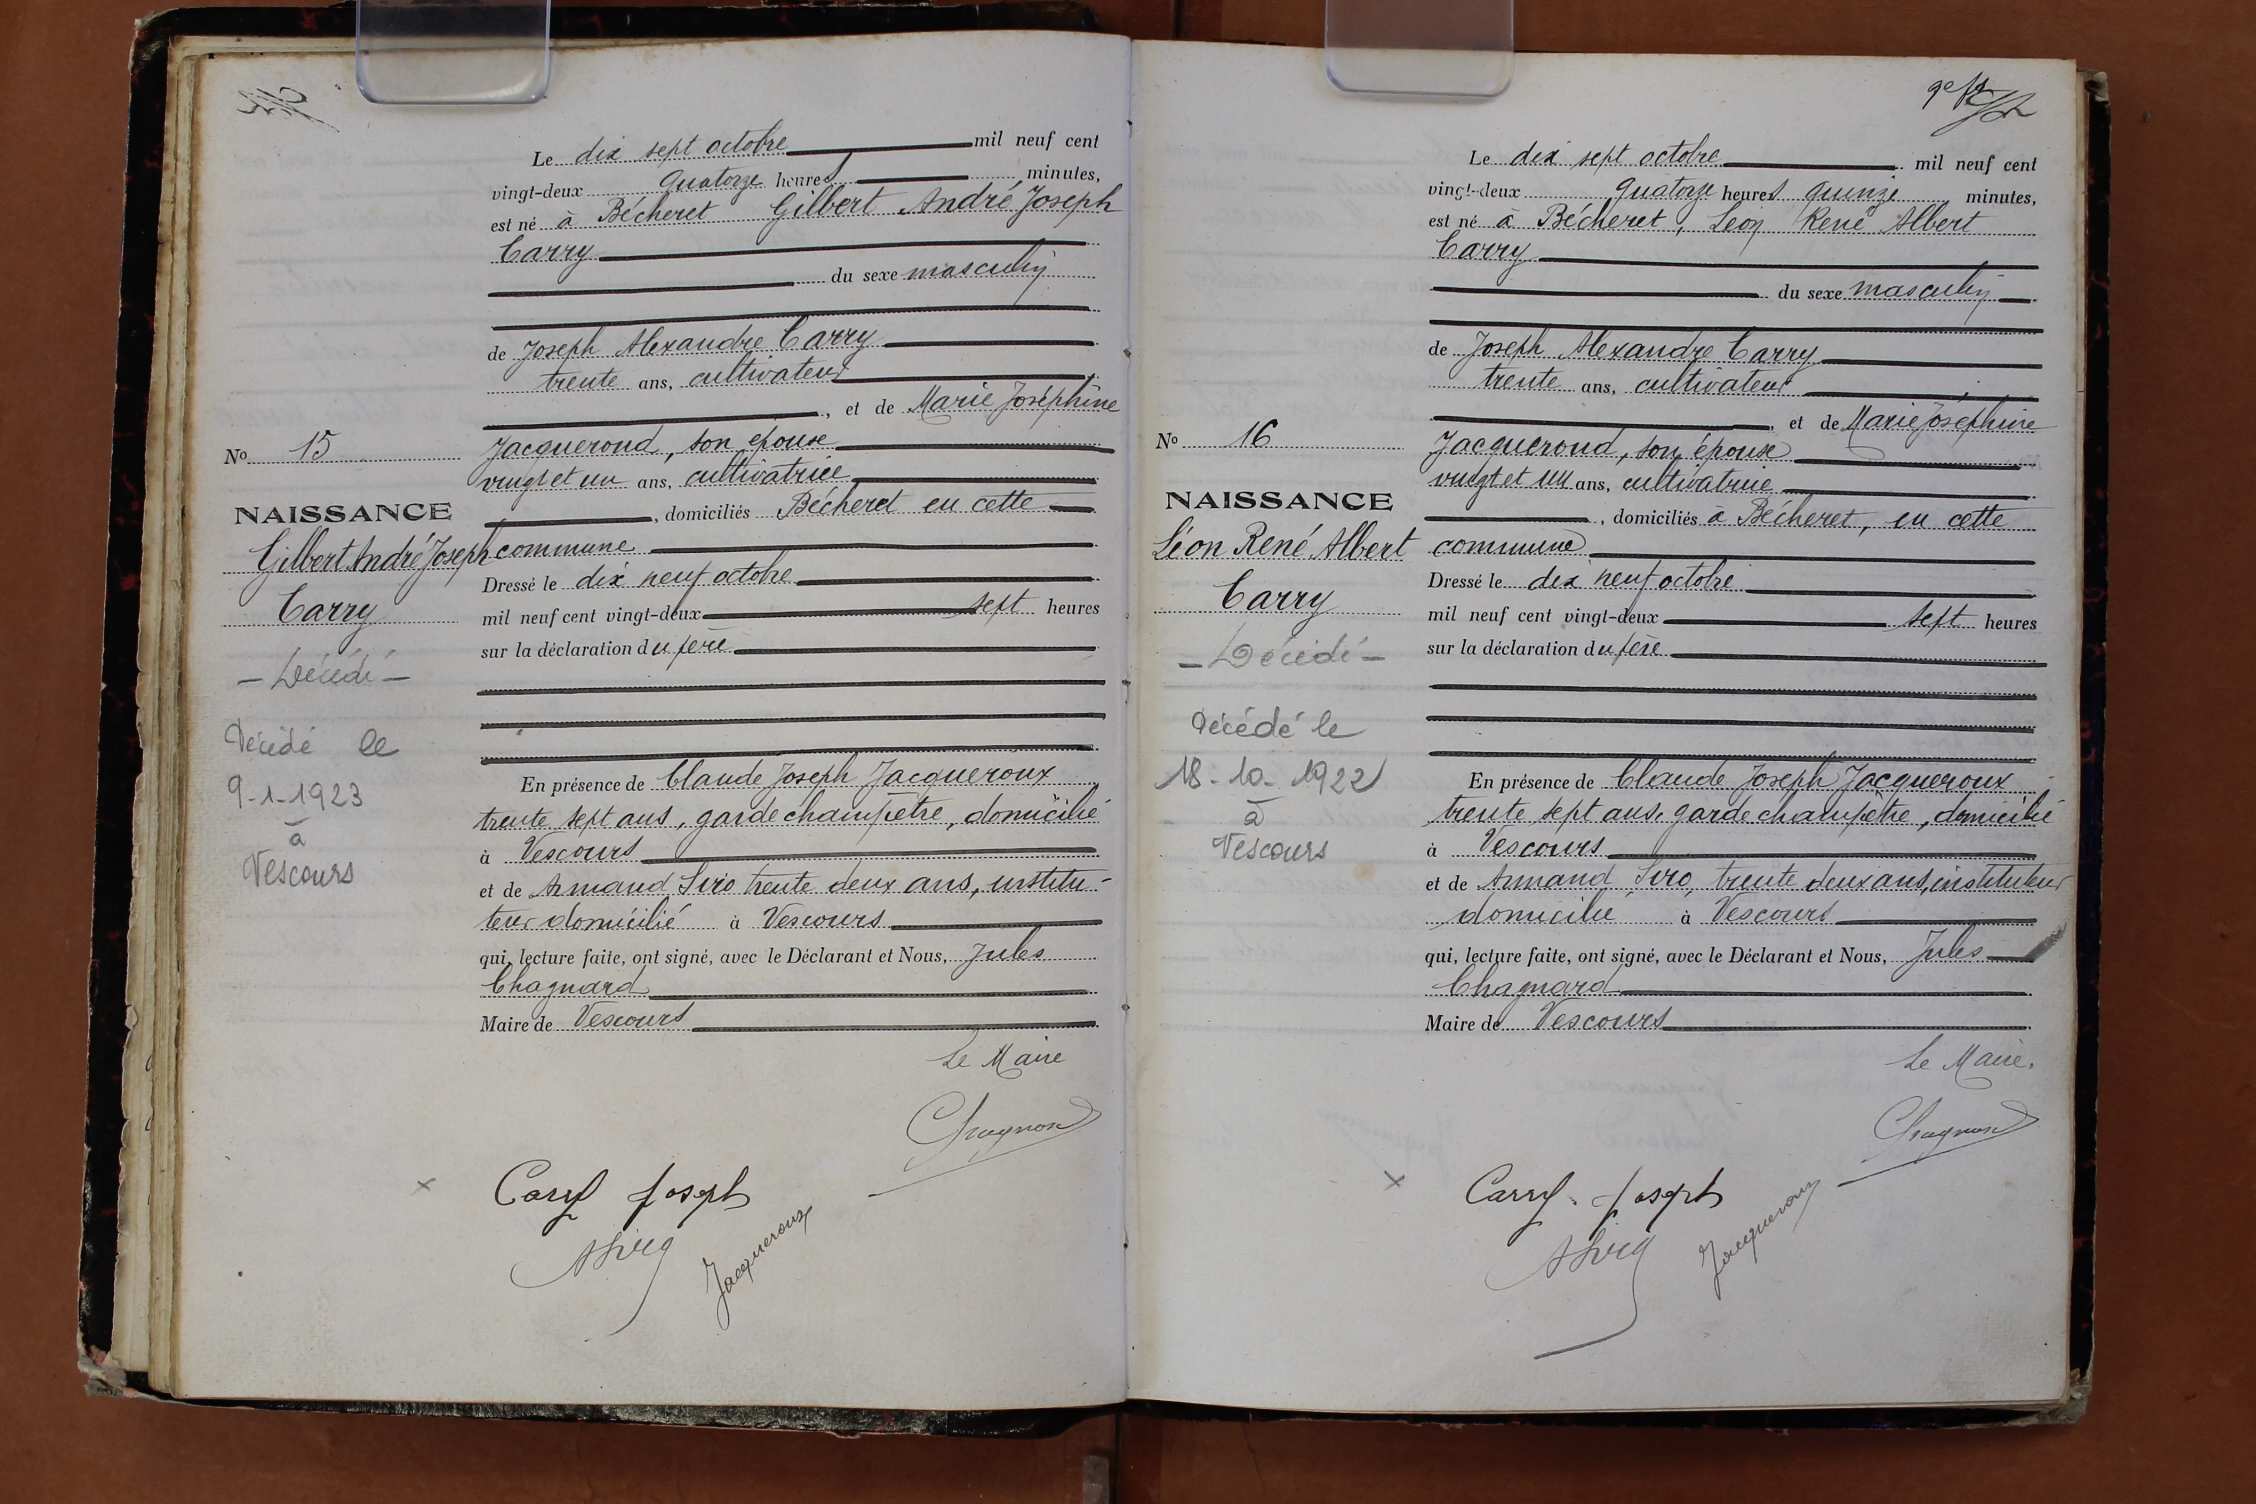 Le dix sept octobre mil neuf cent
vingt-deux quatorze heures minutes,
est né à Bécheret Gilbert André Joseph
Carry
du sexe masculin
de Joseph Alexandre Carry
trente ans, cultivateur
, et de Marie Joséphine
No 15
Jacqueroud, son épouse
vingt et un ans, cultivatrice
, domiciliés Bécheret en cette
NAISSANCE
Gilbert André Joseph
Carry
commune
Dressé le dix neuf octobre
mil neuf cent vingt-deux sept heures
sur la déclaration du père
- Décédé -
Décédé le
9-1-1923
à
Vescours
En présence de Claude Joseph Jacqueroux
trente sept ans, garde champêtre, domicilié
à Vescours
et de Armand Siro trente deux ans, institu-
teur domicilié à Vescours
qui, lecture faite, ont signé, avec le Déclarant et Nous, Jules
Chagnard
Maire de Vescours
Le Maire
Chagnard
Carry Joseph
ASiro
Jacqueroux
9e ft
Le dix sept octobre mil neuf cent
vingt-deux quatorze heures quinze minutes,
est né à Bécheret, Léon René Albert
Carry
du sexe masculin
de Joseph Alexandre Carry
trente ans, cultivateur
, et de Marie Joséphine
No 16
Jacqueroud, son épouse
vingt et un ans, cultivatrice
, domiciliés à Bécheret, en cette
NAISSANCE
Léon René Albert
Carry
commune
Dressé le dix neuf octobre
mil neuf cent vingt-deux sept heures
sur la déclaration du père
- Décédé -
Décédé le
18-10-1922
à
Vescours
En présence de Claude Joseph Jacqueroux
trente sept ans, garde champêtre, domicilié
à Vescours
et de Armand Siro, trente deux ans, instituteur
domicilié à Vescours
qui, lecture faite, ont signé, avec le Déclarant et Nous, Jules
Chagnard
Maire de Vescours
Le Maire.
Chagnard
Carry Joseph
ASiro
Jacqueroux